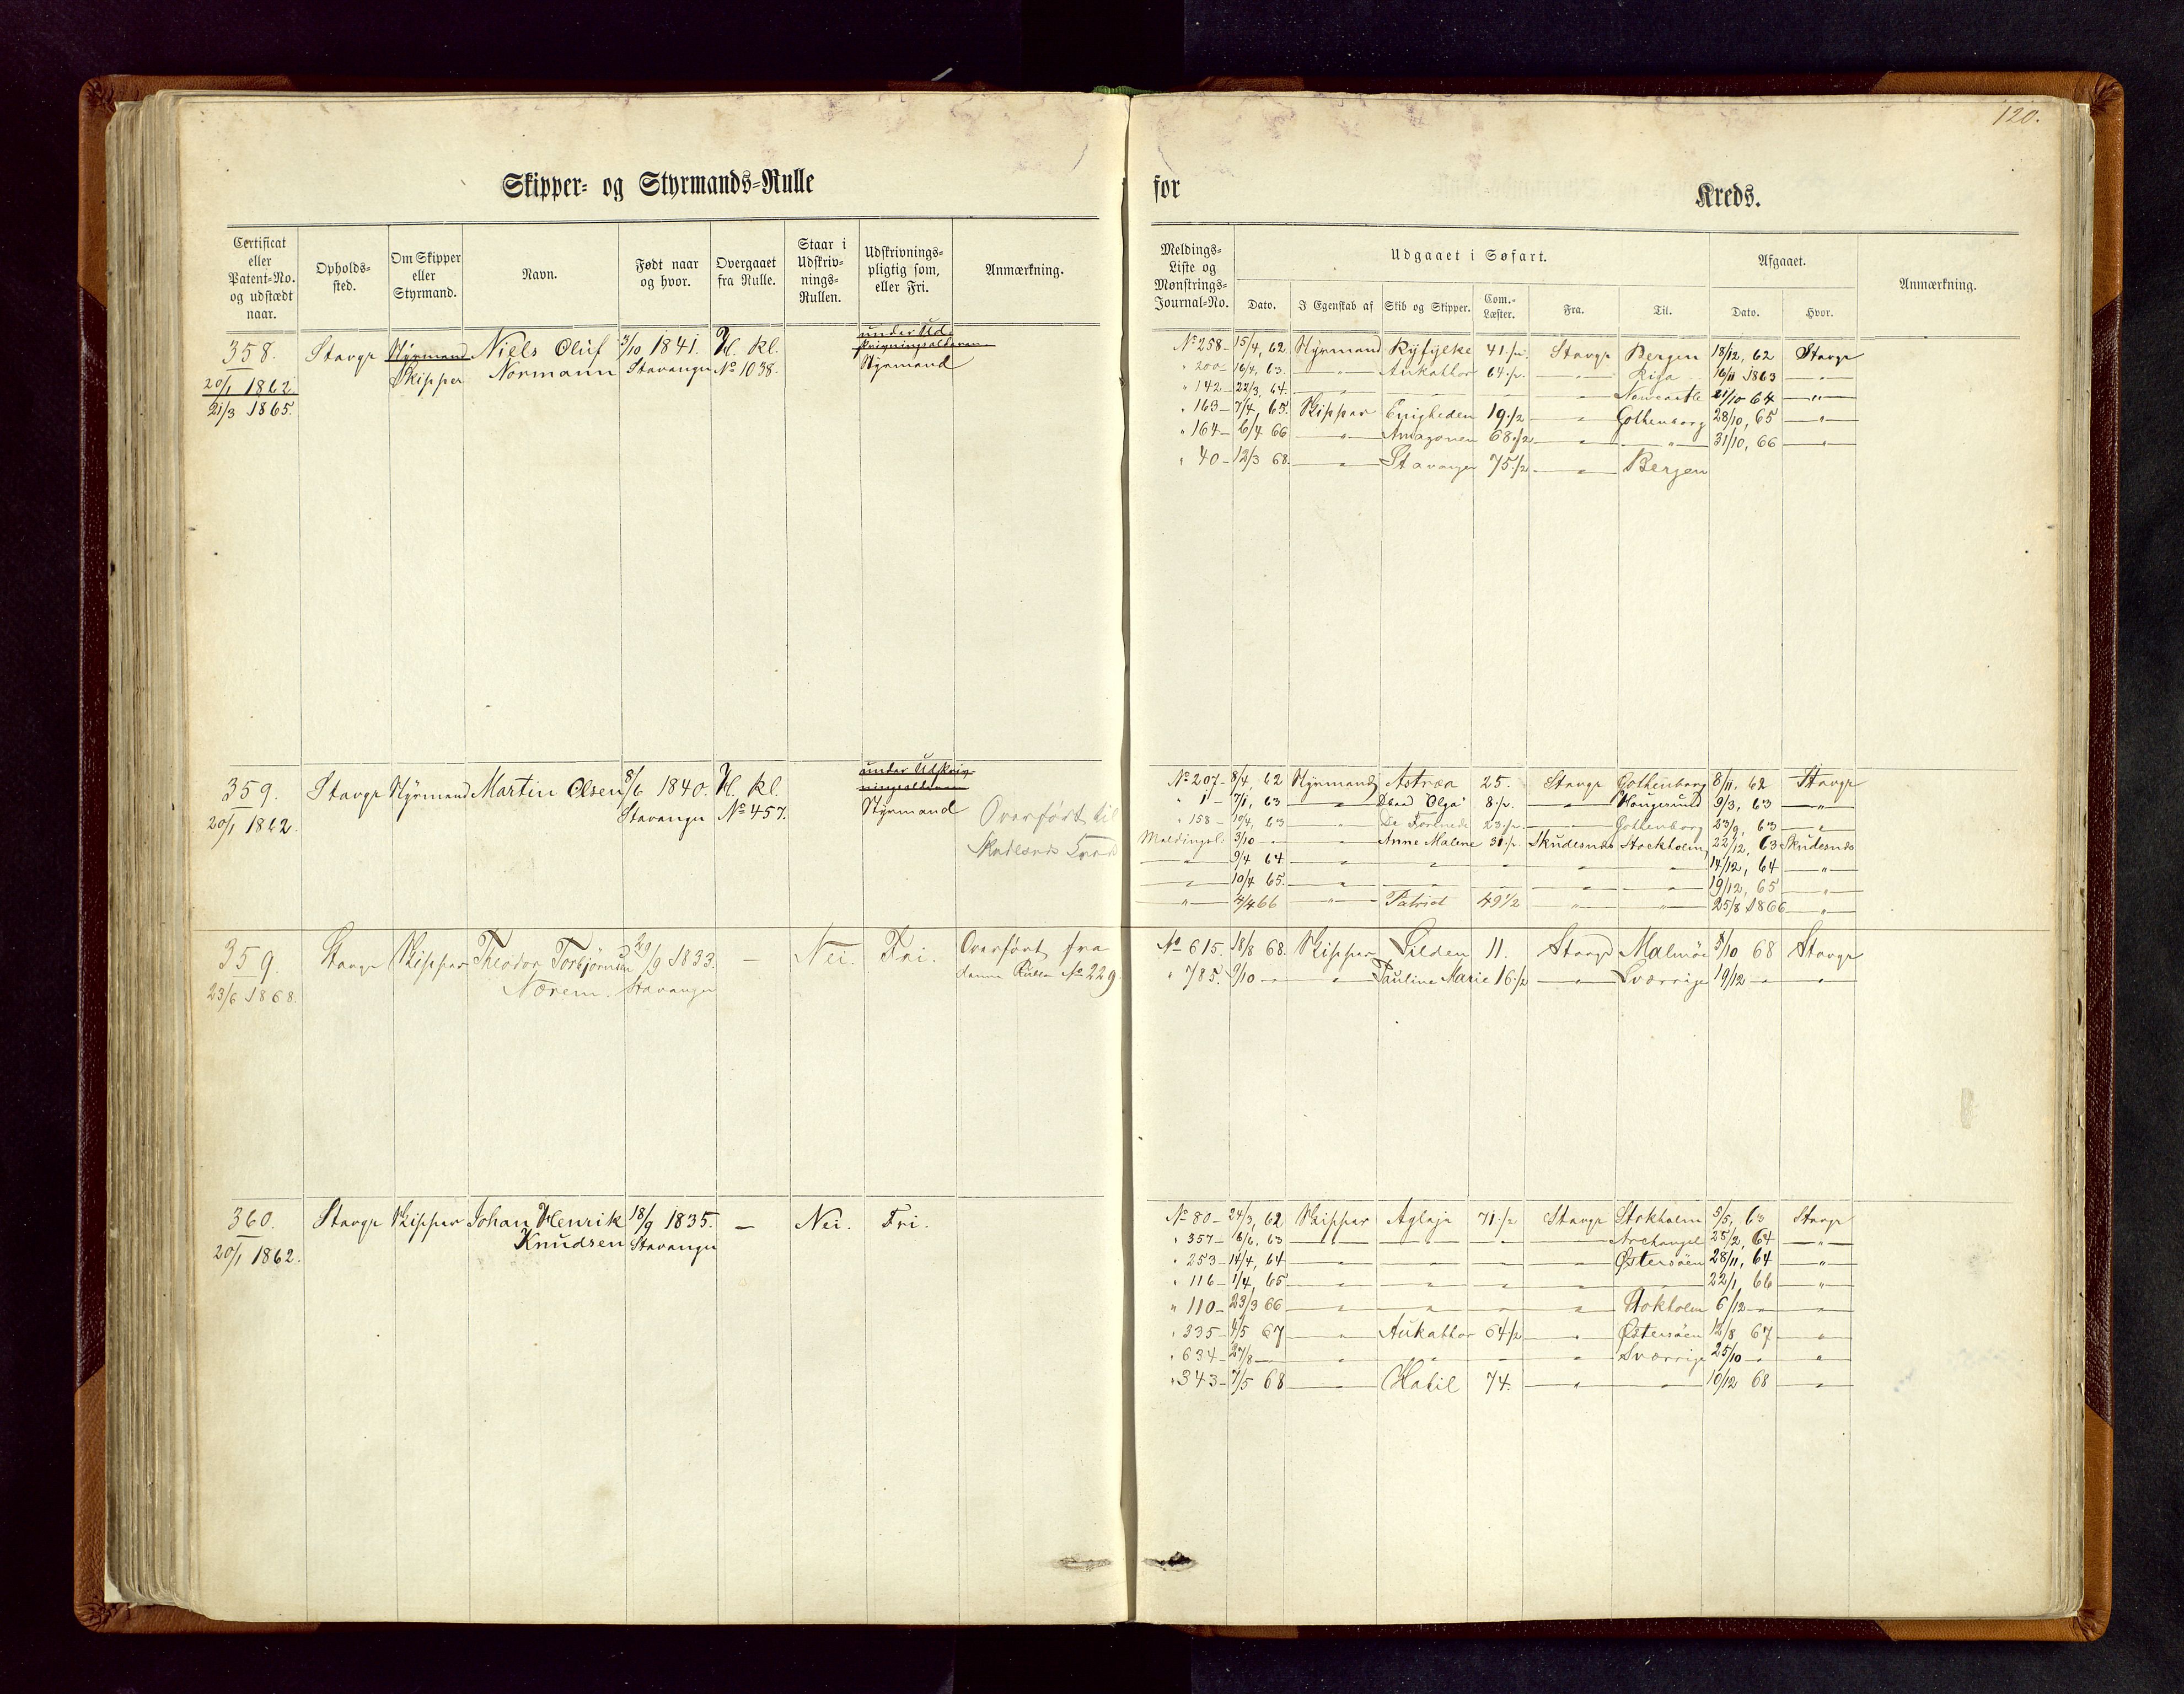 120.
Skipper- og Styrmands-Rulle
for Kreds.
Certificat eller Patent-No. og udstædt naar. Opholds-sted. Om Skipper eller Styrmand. Navn. Født naar og hvor. Overgaaet fra Rulle. Staar i Udskriv-nings-Rullen. Udskrivnings-pligtig som, eller Fri. Anmærkning.
Meldings-Liste og Mønstrings-Journal-No. Udgaaet i Søfart. Afgaaet. Anmærkning.
Dato. I Egenskab af Skib og Skipper. Com.-Læster. Fra. Til. Dato. Hvor.
358. Stavgr Styrmand Niels Oluf 3/10 1841. Hl. Kl. under Ud-
20/1 1862 Skipper Normann Stavanger No 1038. skrivningsalderen
21/3 1865. Styrmand
No 258 - 15/4, 62 Styrmand Ryfylke 41 1/2 Stavgr Bergen 18/12, 62 Stavgr
" 200 - 16/4, 63. " Aukathor 64 1/2 " Riga 16/11 1863 "
" 142 - 22/3, 64. Newcastle 21/10 64 "
" 163 - 7/4, 65. Skipper Enigheden 19 1/2 " Gothenborg 28/10, 65 "
" 164 - 6/4 66 " Amazonen 68 1/2 " " 31/10, 66 "
" 40 - 12/3 68. " Stavanger 75 1/2 " Bergen
359. Stavgr Styrmand Martin Olsen 8/6 1840. Hl. Kl. under Udskriv-
20/1 1862. Stavanger No 457. ningsalderen
Styrmand Overført til
Skudesnæs
No 207 - 8/4, 62 Styrmand Astræa 25. Stavgr Gothenborg 8/11, 62 Stavgr
" 1 - 7/1, 63 " "Olga" 8 1/2 " Haugesund 9/3, 63 "
" 158 - 10/4, 63 " De Forenede 23 1/2 " Gothenborg 23/9, 63 "
Meldingsl. 3/10 - " Anne Malene 31 1/2 Skudesnes Stockholm 22/12, 63 Skudesnes
" 9/4 64 " " " " 14/12, 64 "
" 10/4 65. " " " " 19/12, 65 "
" 4/4 66 " Patriot 49 1/2 " " 25/8 1866 "
359. Stavgr Skipper Theodor Torbjørnsen 29/9 1833. — Nei. Fri. Overført fra
23/6 1868. Nærem. Stavanger denne Rulle No 229.
No 615. 18/8 68. Skipper Silden 11. Stavgr Malmöe 5/10 68 Stavgr
" 785. 9/10 - " Pauline Marie 16 1/2 " Sverrige 19/12 - "
360. Stavgr Skipper Johan Henrik 18/9 1835. — Nei. Fri.
20/1 1862. Knudsen Stavanger
No 80 - 24/3, 62 Skipper Aglaja 71 1/2 Stavgr Stokholm 5/5, 63 Stavgr
" 357 - 6/6, 63 " Archangel 25/2, 64 "
" 253 - 14/4, 64 " " " " Østersöen 28/11, 64 "
" 116 - 1/4, 65 " " " " " 22/1, 66 "
" 110 - 23/3 66 " " " " Stokholm 6/12 - "
" 335 - 4/5 67 " Aukathor 64 1/2 " Østersöen 12/8 67 "
" 634 - 27/8 - " " " " Sverrige 25/10 - "
" 343 - 7/5 68 " Habil 74. " " 10/12 68 "